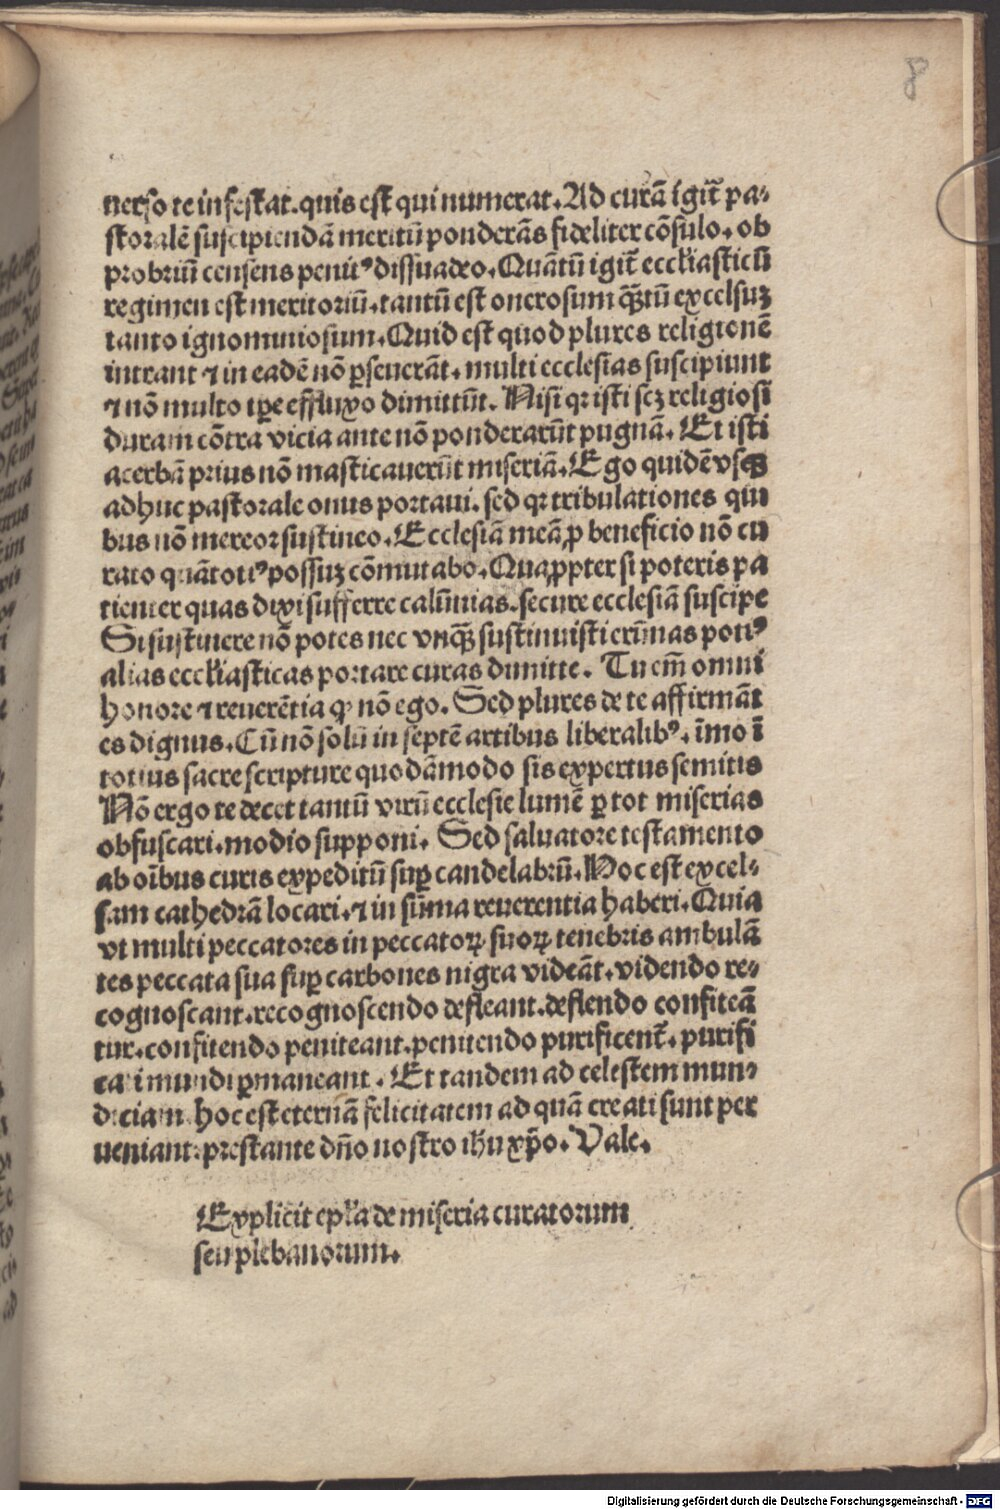 8
uerso te infestat. quis est qui numerat. Ad curā igit̄ pa-
storalē suscipiendā meritū ponderās fideliter cōsulo. ob
probriū censens penitꝰ dissuadeo. Quātū igit̄ eccl̄iasticū
regimen est meritoriū. tantū est onerosum qꝫtū excelsuꝫ
tanto ignominiosum. Quid est quod plures religionē
intrant ⁊ in eadē nō ꝑseuerāt. multi ecclesias suscipiunt
⁊ nō multo tꝑe effluxo dimittūt. Nisi qꝛ isti scꝫ religiosi
duram cōtra vicia ante nō ponderarūt pugnā. Et isti
acerbā prius nō masticauerūt miseriā. Ego quidē vsqꝫ
adhuc pastorale onus portaui. sed qꝛ tribulationes qui
bus nō mereor sustineo. Ecclesiā meā ꝓ beneficio nō cu
rato quātotiꝰ possuꝫ cōmutabo. Quaꝓpter si poteris pa
tienter quas dixi sufferre calūnias. secure ecclesiā suscipe
Si sustinere nō potes nec vnqꝫ sustinuisti erūnas potiꝰ
alias eccl̄iasticas portare curas dimitte. Tu em̄ omni
honore ⁊ reuerētia qꝫ nō ego. Sed plures de te affirmāt
es dignus. Cū nō solū in septē artibus liberalibꝰ. īmo ī
totius sacre scripture quodāmodo sis expertus semitis
Nō ergo te decet tantū virū ecclesie lumē ꝑ tot miserias
obfuscari. modio supponi. Sed saluatore testamento
ab oībus curis expeditū suꝑ candelabrū. Hoc est excel-
sam cathedrā locari. ⁊ in sūma reuerentia haberi. Quia
vt multi peccatores in peccatoꝝ suoꝝ tenebris ambulā
tes peccata sua suꝑ carbones nigra videāt. videndo re-
cognoscant. recognoscendo defleant. deflendo confiteā
tur. confitendo peniteant. penitendo purificent̄. purifi
cati mundi ꝑmaneant. Et tandem ad celestem mun-
diciam hoc est eternā felicitatem ad quā creati sunt per
ueniant: prestante dn̄o nostro ihu xp̄o. Vale.
Explicit epl̄a de miseria curatorum
seu plebanorum.
Digitalisierung gefördert durch die Deutsche Forschungsgemeinschaft - DFG